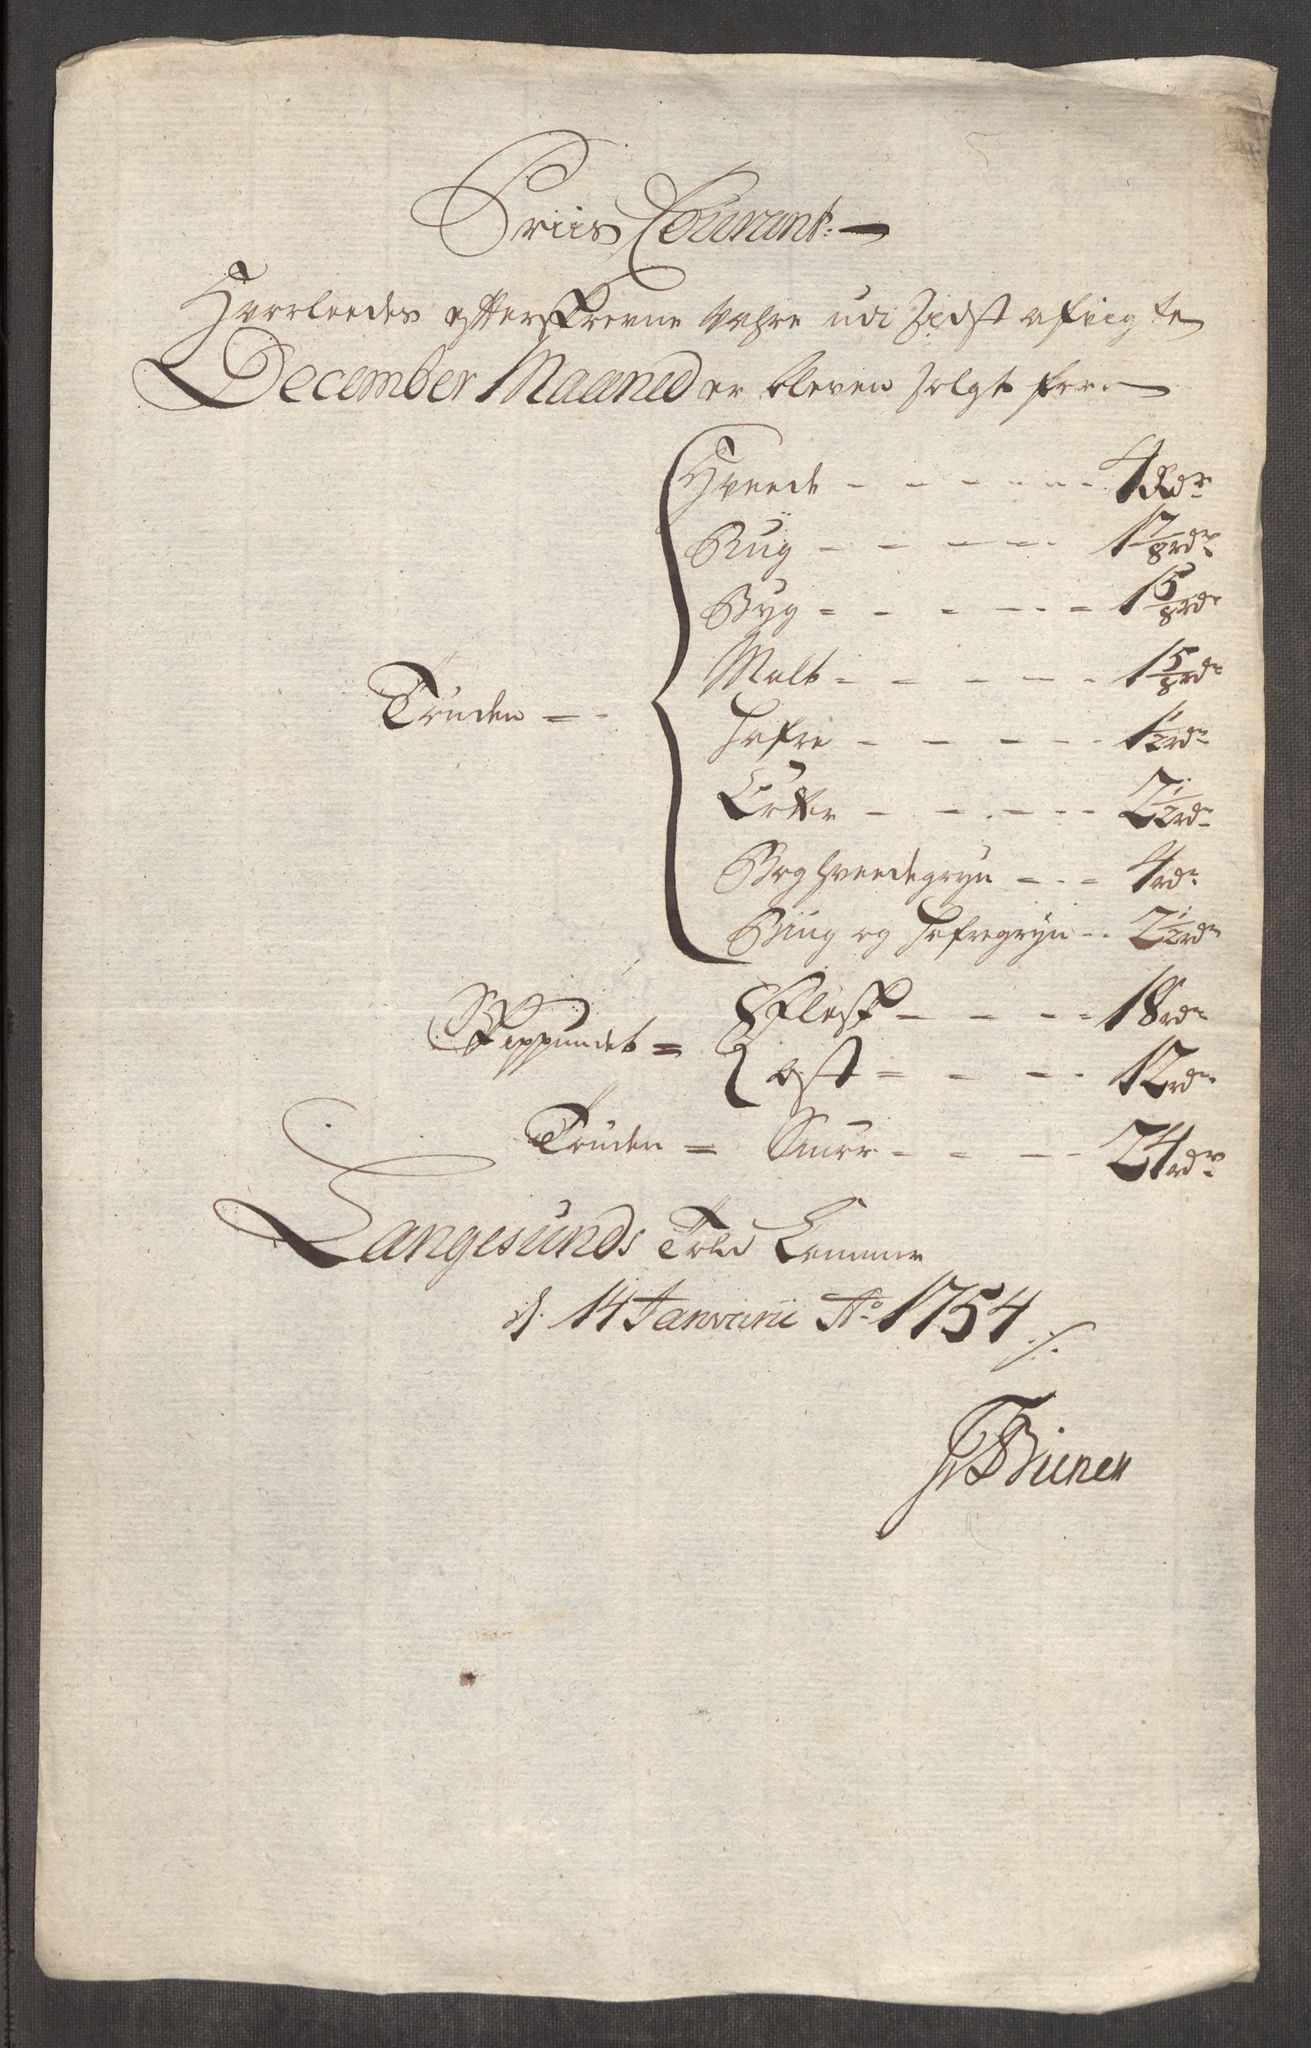 Priis Courant
Hvorleedes efterskrevne Vahre udi Sidst afvigte
December Maaned er bleven solgt for
Tønden
Hveede 4 Rdr
Rug 1 7/8 rdr
Byg 1 5/8 rdr
Malt 1 5/8 rdr
Hafre 1 1/2 rdr
Erter 2 1/2 rdr
Boghveedegryn 4 rdr
Biug og Hafregryn 2 1/2 rdr
Skippundet
Flesk 18 rdr
Ost 12 rdr
Tønden = Smør 24 rdr
Langesunds Told Cammer
d. 14 Januarii Ao 1754